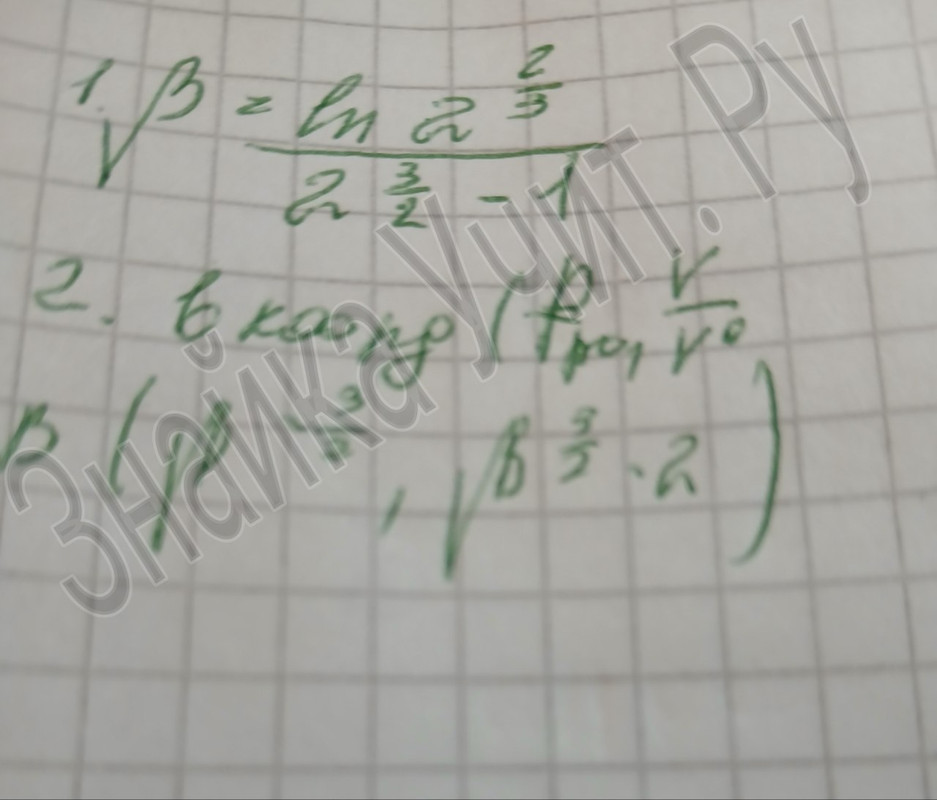 1. √β = ln 2^(2/3)
2^(3/2) - 1
2. В коорд (p/p₀, V/V⁰
В ( , √β^(3/2) · 2 )
Знайка Учит.Ру